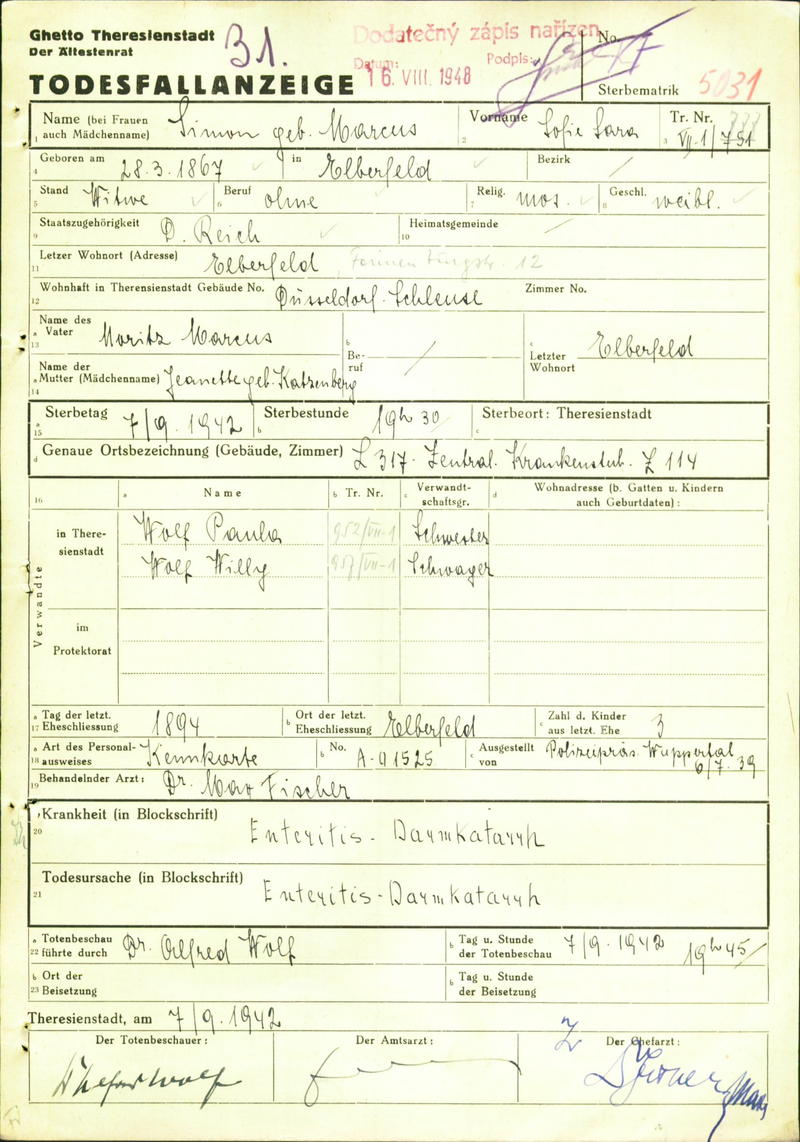 Ghetto Theresienstadt
Der Ältestenrat
31.
Dodatečný zápis nařízen
Datum: 16. VIII. 1948 Podpis:
No.
TODESFALLANZEIGE
Sterbematrik 5031
Name (bei Frauen auch Mädchenname) Simon geb. Marcus
Vorname Sofie Sara
Tr. Nr. VII-1/751
Geboren am 28.3.1867 in Elberfeld Bezirk /
Stand Witwe Beruf ohne Relig. mos. Geschl. weibl.
Staatszugehörigkeit D. Reich Heimatsgemeinde /
Letzer Wohnort (Adresse) Elberfeld 12
Wohnhaft in Theresienstadt Gebäude No. Düsseldorf-Schleuse Zimmer No.
Name des Vater Moritz Marcus
Beruf /
Letzter Wohnort Elberfeld
Name der Mutter (Mädchenname) Jeanette geb. Katzenberg
Sterbetag 7/9.1942 Sterbestunde 19h 30 Sterbeort: Theresienstadt
Genaue Ortsbezeichnung (Gebäude, Zimmer) L 317. Zentral. Krankenstub. Z 114
Name Tr. Nr. Verwandtschaftsgr. Wohnadresse (b. Gatten u. Kindern auch Geburtdaten):
Verwandte
in Theresienstadt
Wolf Paula 952/VII-1 Schwester
Wolf Willy 957/VII-1 Schwager
im Protektorat
Tag der letzt. Eheschliessung 1894
Ort der letzt. Eheschliessung Elberfeld
Zahl d. Kinder aus letzt. Ehe 3
Art des Personalausweises Kennkarte
No. A-01525
Ausgestellt von Polizeipräs. Wuppertal 6/7.39
Behandelnder Arzt: Dr. Max Fischer
Krankheit (in Blockschrift) Enteritis - Darmkatarrh
Todesursache (in Blockschrift) Enteritis - Darmkatarrh
Totenbeschau führte durch Dr. Alfred Wolf
Tag u. Stunde der Totenbeschau 7/9.1942 19h 45/
Ort der Beisetzung
Tag u. Stunde der Beisetzung
Theresienstadt, am 7/9.1942
Der Totenbeschauer: Der Amtsarzt: Der Chefarzt: